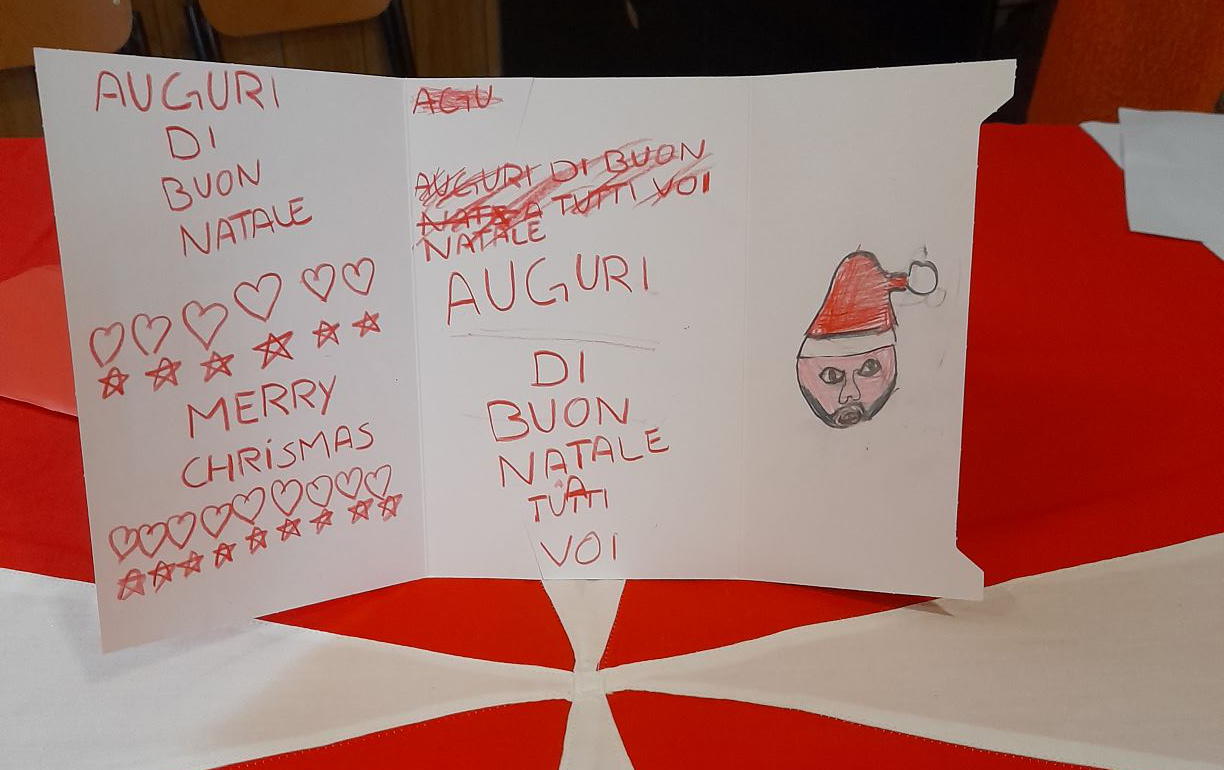 AUGURI
DI
BUON
NATALE
MERRY
CHRISMAS
AGIU
AUGURI DI BUON
NATA A TUTTI VOI
NATALE
AUGURI
DI
BUON
NATALE
A
TUTTI
VOI